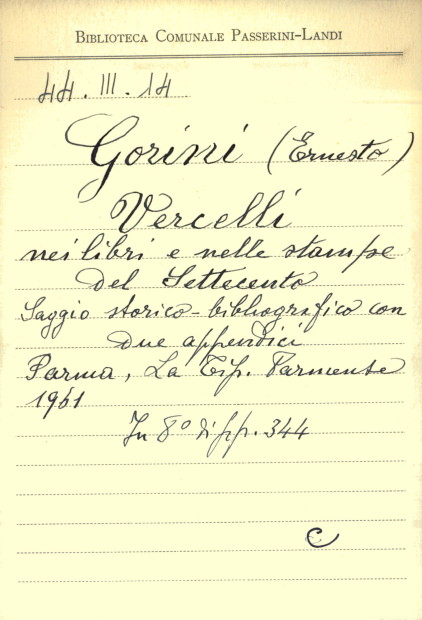 BIBLIOTECA COMUNALE PASSERINI-LANDI
44. III. 14
Gorini (Ernesto)
Vercelli
nei libri e nelle stampe
del Settecento
Saggio storico-bibliografico con
due appendici
Parma, La Tip. Parmense
1961
In 8° di pp. 344
C